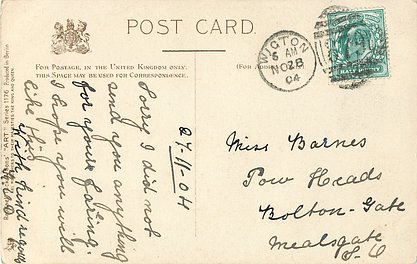 POST CARD.
FOR POSTAGE, IN THE UNITED KINGDOM ONLY,
THIS SPACE MAY BE USED FOR CORRESPONDENCE.
(FOR ADDRESS
WIGTON
6 AM
NO 28
04
27-11-04
Sorry I did not
send you anything
for your fairing.
I hope you will
like this
With kind regards
Miss Barnes
Pow Heads
Bolton-Gate
Mealsgate
"ART" Series 1176. Printed in